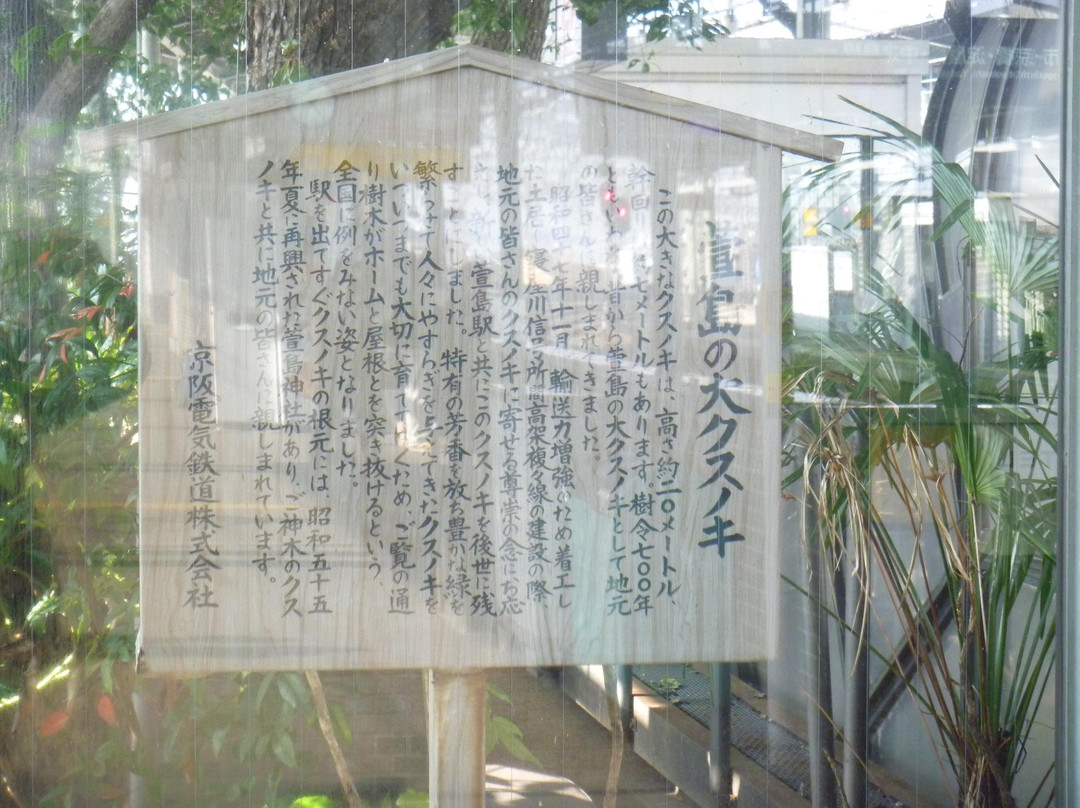 萱島の大クスノキ
この大きなクスノキは、高さ約二〇メートル、
幹回 七メートルもあります。樹令七〇〇年
ともいわ 昔から萱島の大クスノキとして地元
の皆さんに親しまれてきました。
昭和四十七年十一月、輸送力増強のため着工し
た土居〜寝屋川信号所間高架複々線の建設の際、
地元の皆さんのクスノキに寄せる尊崇の念にお応
え 新 萱島駅と共にこのクスノキを後世に残
すことにしました。特有の芳香を放ち豊かな緑を
繁らせて人々にやすらぎを与えてきたクスノキを
いついつまでも大切に育ててゆくため、ご覧の通
り樹木がホームと屋根とを突き抜けるという、
全国に例をみない姿となりました。
駅を出てすぐクスノキの根元には、昭和五十五
年夏に再興された萱島神社があり、ご神木のクス
ノキと共に地元の皆さんに親しまれています。
京阪電気鉄道株式会社